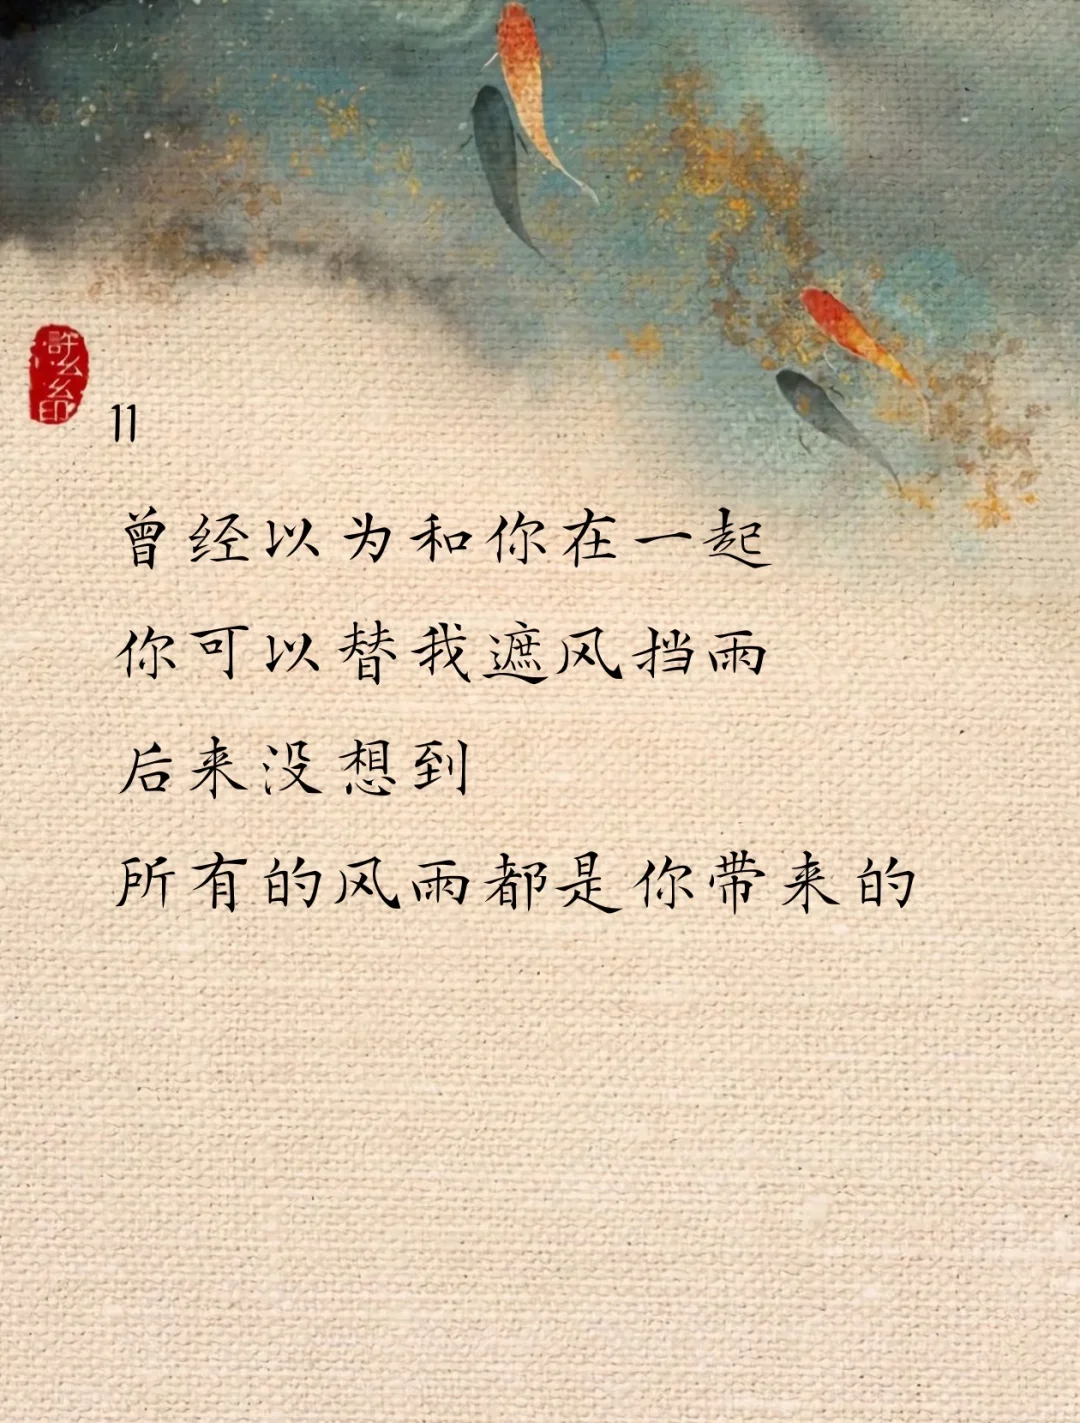 許么么印
11
曾经以为和你在一起
你可以替我遮风挡雨
后来没想到
所有的风雨都是你带来的